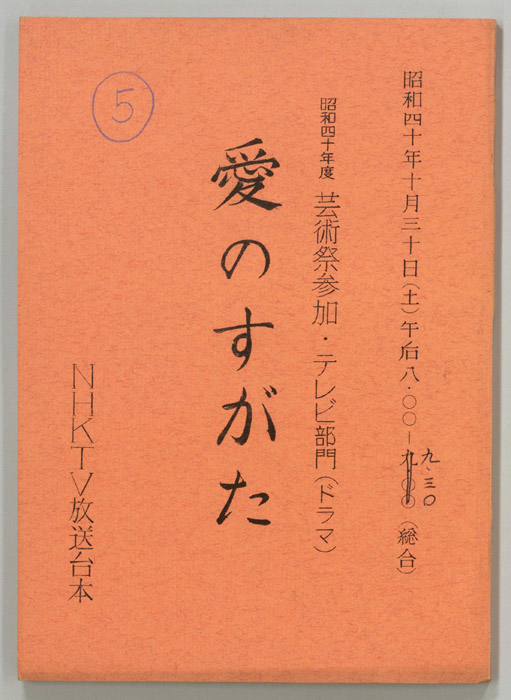 昭和四十年十月三十日(土)午后八・〇〇ー九・〇〇(総合)
九・三〇
昭和四十年度 芸術祭参加・テレビ部門(ドラマ)
愛のすがた
5
NHKTV放送台本